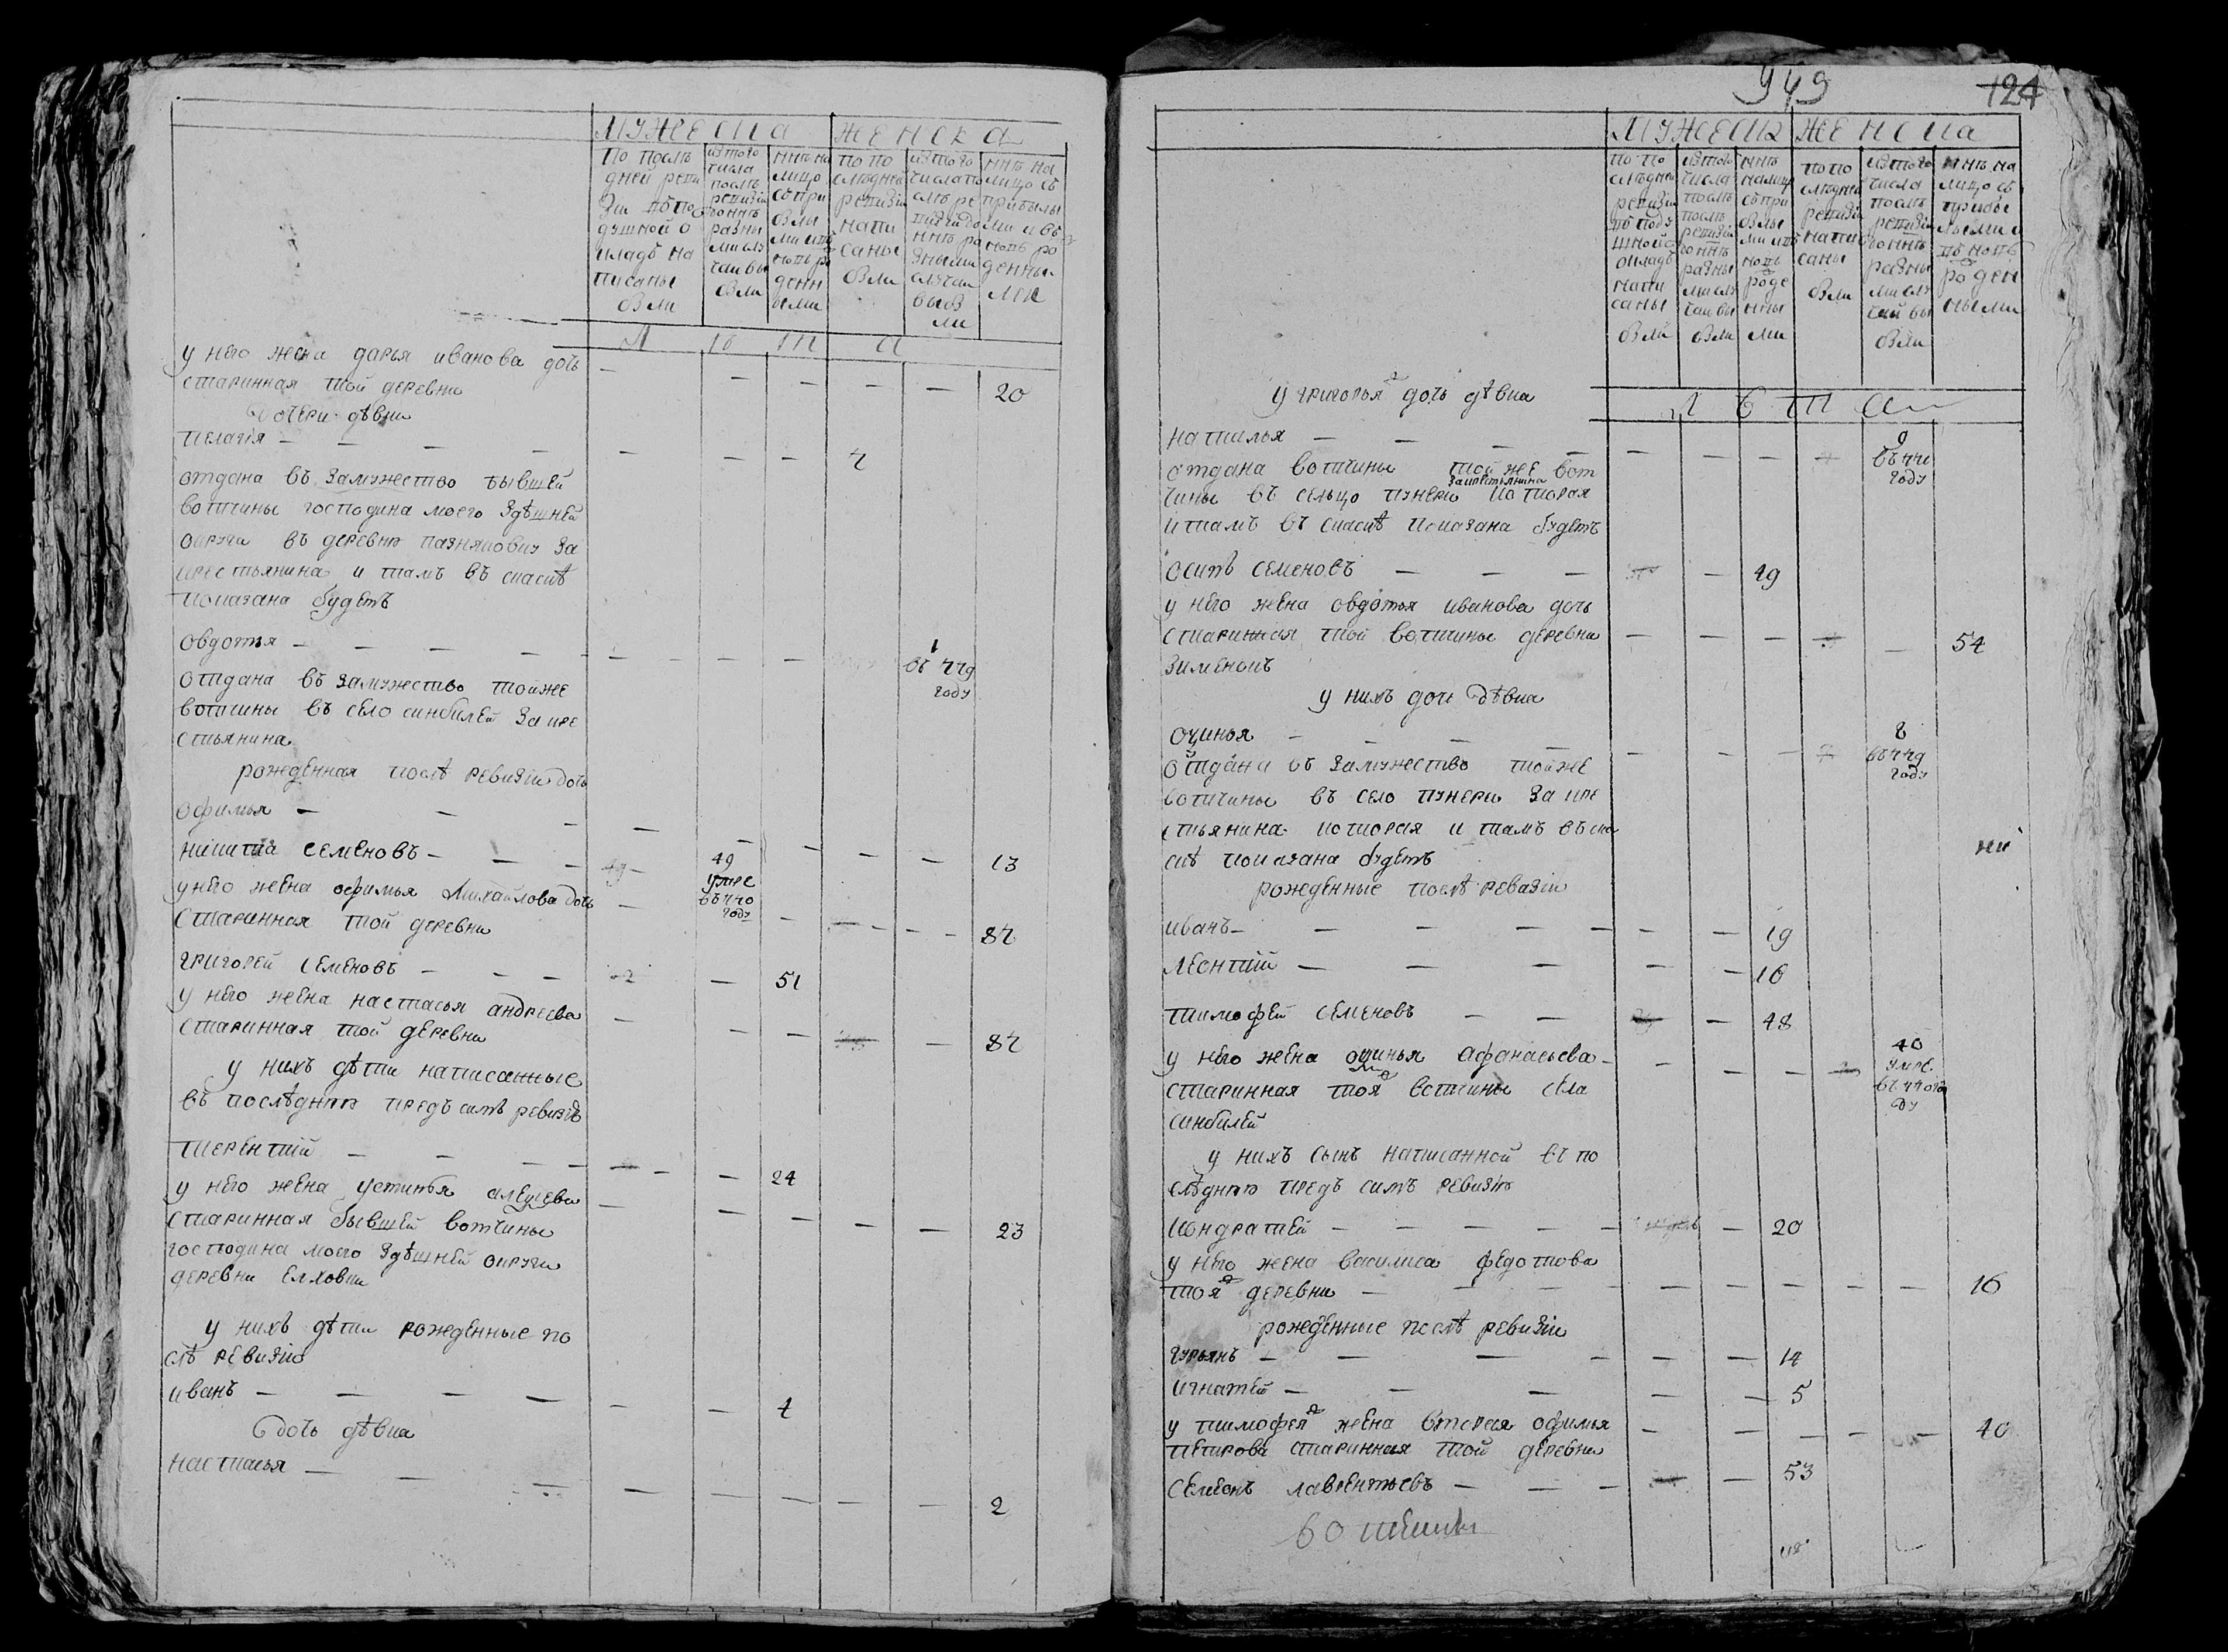 МУЖЕСКА ЖЕНСКА
По послѣ дней реви зіи по по душной о кладъ на писаны были
из того числа послѣ ревизіи воннѣ разны ми слу чаи вы были
ннѣ на лицо съ при былы ми и въ новь ро денн ыми
по по слѣдней ревизіи напи саны были
из того числа по слѣ ре визіи до ннѣ ра зными случаи выбы ли
ннѣ на лицо съ прибылы ми и въ новь ро денны ми
Л
у него жена дарья иванова дочь
старинная той деревни — — — — — 20
дочери девки
пелагія — — — — — — —
отдана въ замужество бывшей
вотчины господина моего здѣшней
округи въ деревню за
крестьянина и тамъ въ сказкѣ
показана будетъ
овдотья — — — — — — — — 1 въ 779 году
отдана въ замужество той же
вотчины въ село синбилей за кре
стьянина
рожденная послѣ ревизіи дочь
офимья — — — — — — — — 13
никита семеновъ — — — 49 умре въ 770 году
у него жена офимья михайлова дочь
старинная той деревни — — — — 87
григорей семеновъ — — — — 51
у него жена настасья андреева
старинная той деревни — — — — 87
у нихъ дѣти написанные
въ послѣдней предъ симъ ревизіи
терентій — — — — — — 24
у него жена устинья алеѯева
старинная бывшей вотчины — — — — — 23
господина моего здѣшней округи
деревни елховки
у нихъ дѣти рожденные по
слѣ ревизіи
иванъ — — — — — — 7
дочь дѣвка
настасья — — — — — — — — 2
949
124
МУЖЕСК ЖЕНСКА
по по слѣдней ревизіи по поду шной окладъ напи саны были
из того числа послѣ ревизіи воннѣ разны ми слу чаи вы были
ннѣ налицо съ при былы ми и въ новь роде нны ми
по по слѣдней ревизіи напи саны были
из того числа послѣ ревизіи воннѣ разны ми слу чаи вы были
ннѣ на лицо съ прибы лыми и въ новь ро ден ными
у григорья дочь дѣвка
наталья — — — — — — — — 9 въ 771 году
отдана вотчины той же вот
за крестьянина
чины въ сельцо пунери которая
и тамъ въ сказкѣ показана будетъ
осипъ семеновъ — — — — 49
у него жена овдотья иванова дочь
старинная той вотчины деревни — — — — 54
зименокъ
у нихъ дочь дѣвка
оѯинья — — — — — — — 8 въ 779 году
отдана въ замужество той же
вотчины въ село пунери за кре
стьянина которая и тамъ въ ска
скѣ показана будетъ
рожденные послѣ ревизіи
иванъ — — — — — — — 19
леонтій — — — — — 16
тимофей семеновъ — — — 48
у него жена оѯинья афанасьева — — — — 40 умре въ 770 го ду
старинная тоя вотчины села
синбилей
у нихъ сынъ написанной въ по
слѣдней предъ симъ ревизіи
кондратей — — — — — — 20
у него жена василиса федотова
тоя деревни — — — — — — — — — 16
рожденные послѣ ревизіи
гурьянъ — — — — — — 14
игнатей — — — — — 5
у тимофея жена вторая офимья — — — — — 40
петрова старинная той деревни
семенъ лаврентьевъ — — — — 53